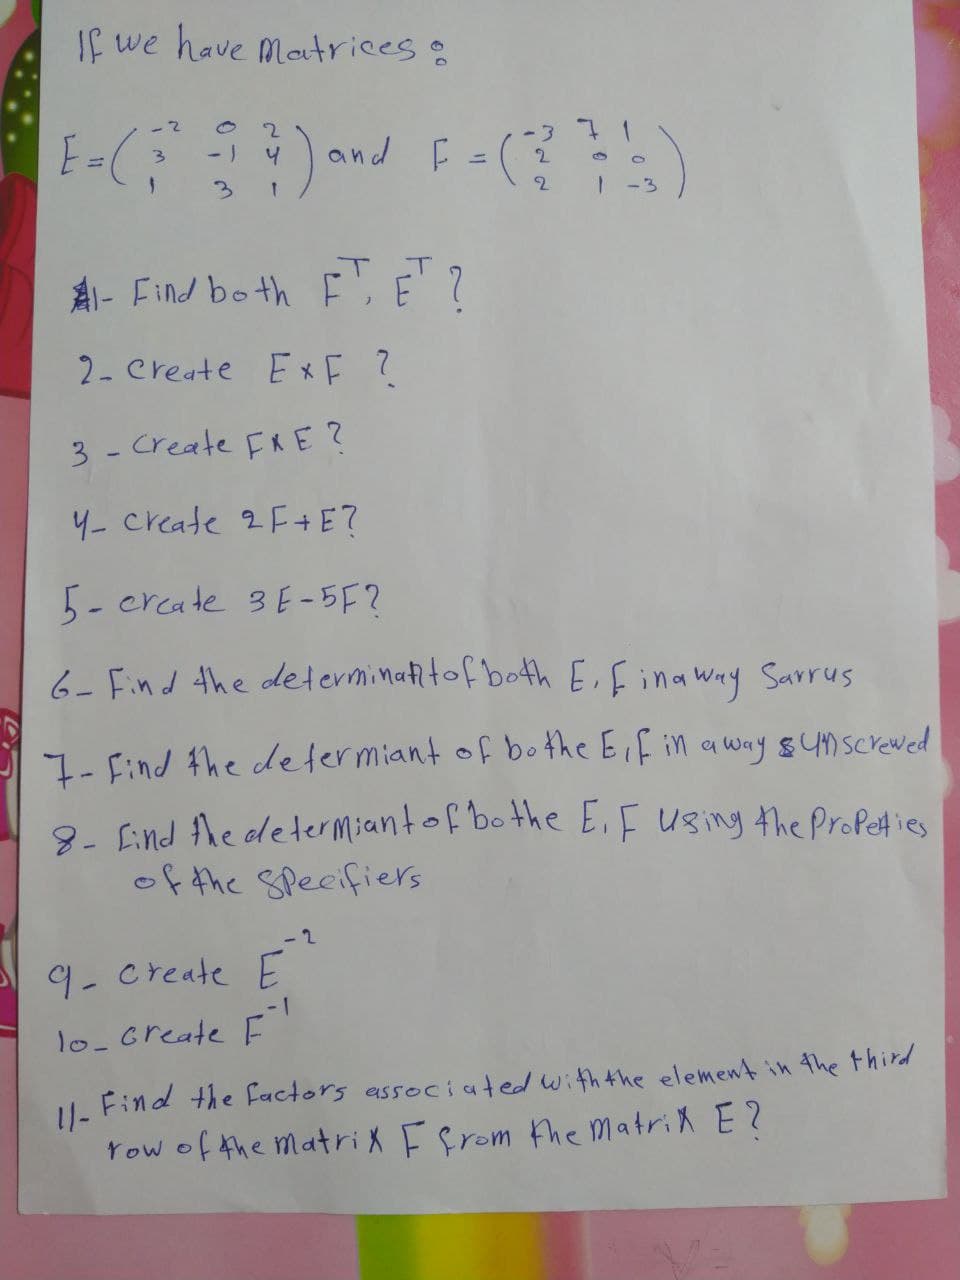 If we have Matrices :
E = ( -2 0 2
3 -1 4
1 3 1 ) and F = ( -3 7 1
2 0 0
2 1 -3 )
1- Find both F^T, E^T ?
2- Create E x F ?
3 - Create F x E ?
4- Create 2F + E ?
5- create 3E - 5F ?
6- Find the determinant of both E, F in a way Sarrus
7- Find the determiant of bothe E, F in a way unscrewed
8- Find the determiant of bothe E, F Using the Properties
of the specifiers
9- Create E^-2
10- Create F^-1
11- Find the factors associated with the element in the third
row of the matrix F from the matrix E ?